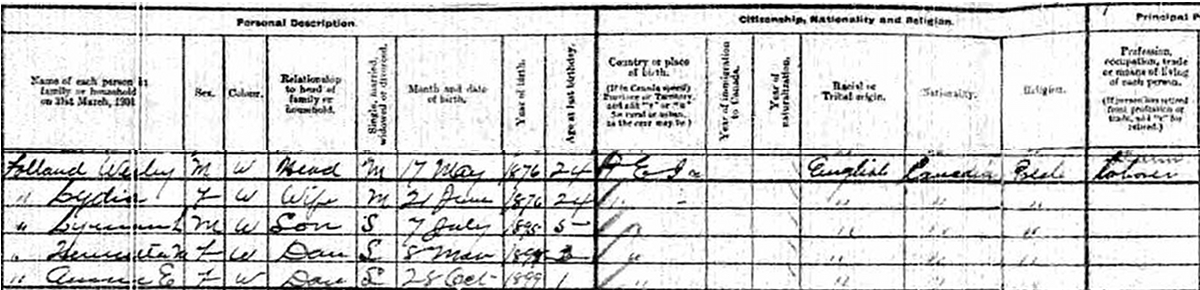 Personal Description. Citizenship, Nationality and Religion. Principal P
Name of each person in family or household on 31st March, 1901 Sex. Colour. Relationship to head of family or household. Single, married, widowed or divorced. Month and date of birth. Year of birth. Age at last birthday. Country or place of birth. (If in Canada specify Province or Territory, and add "r" or "u" for rural or urban, as the case may be) Year of immigration to Canada. Year of naturalization. Racial or Tribal origin. Nationality. Religion. Profession, occupation, trade or means of living of each person. (If person has retired from profession or trade, add "r" for retired.)
Folland Wesley M W Head M 17 May 1876 24 P E I English Canadian
" Lydia F W Wife M 21 June 1876 24 " " " "
" M W Son S 7 July 1895 5 " " "
" F W Dau S 8 " " " "
" Annie E F W Dau S 28 Oct 1899 1 " " " "